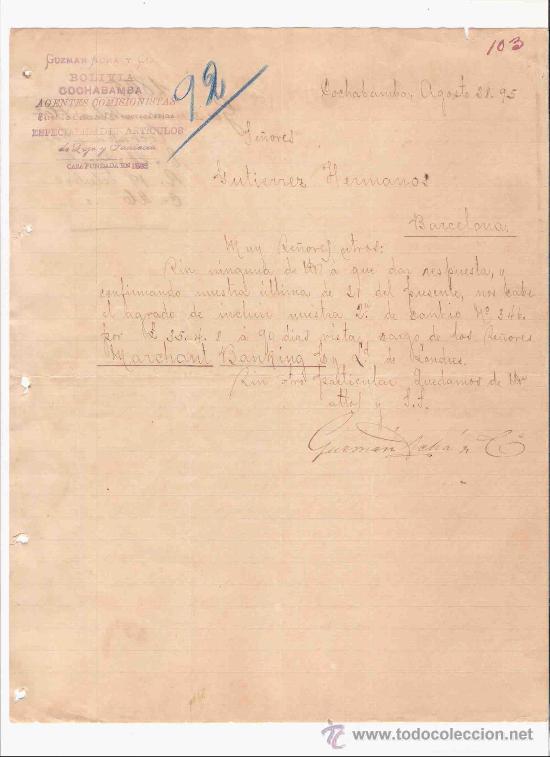 GUZMAN ACHÁ Y Co.
BOLIVIA
COCHABAMBA
AGENTES COMISIONISTAS
ESPECIALIDADES ARTICULOS
de Lujo y Fantasia
CASA FUNDADA EN
92
103
Cochabamba, Agosto 28. 95
Señores
Gutierrez Hermanos
Barcelona.
Muy Señores ntros:
Sin ninguna de á que dar respuesta, y
confirmando nuestra última de 21 del presente, nos cabe
el agrado de incluir nuestra 2ª de cambio Nº 246.
por £ 35.4.8 á 90 dias vista, cargo de los Señores
Marchant Banking Cy Ld de Londres.
Sin otro particular quedamos de
attos y S.S.
Guzman Achá y Cª
www.todocoleccion.net